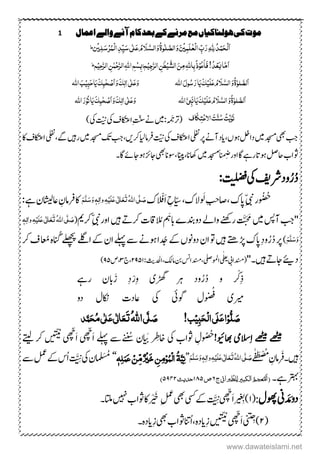 موت کی ہولناکیاں مع مرنے کے بعد کام آنے والے اعمال 1
اَلْحَمْدُ لِلّٰہِ رَبِّ الْعٰلَمِیْنَ وَ الصَّلٰوۃُ وَالسَّلَامُ عَلٰی سَیِّدِ الْمُرْسَلِیْنَ ط
اَمَّا بَعْدُ فَاَعُوْذُ بِاللّٰہِ مِنَ الشَّیْطٰنِ الرَّجِیْمِ ط بِسْمِ اللّٰہِ الرَّحْمٰنِ الرَّحِیْمِ ط
اَلصَّلٰوۃُ وَالسَّلَامُ عَلَیْكَ یَا رَسُوْلَ اللہ وَعَلٰی اٰلِكَ وَ اَصْحٰبِكَ یَا حَبِیْبَ اللہ
اَلصَّلٰوۃُ وَالسَّلَامُ عَلَیْكَ یَا نَبِیَّ اللہ وَعَلٰی اٰلِكَ وَ اَصْحٰبِكَ یَا نُوْرَ اللہ
نَوَیْتُ سُنَّتَ الْاِعْتِکَاف (ترجمہ: میں نے سنّتِ اعتکاف کی نِیَّت کی)
جب بھی مسجد میں داخل ہوں، یاد آنے پر نفلی اعتکاف کی نِیَّت فرما لیا کریں، جب تک مسجد میں رہیں گے، نفلی اعتکاف کا
ثواب حاصل ہوتا رہے گا اور ضمناً مسجد میں کھانا، پینا، سونا بھی جائز ہو جائے گا۔
دُرُود شریف کی فضیلت:
حُضُورِ نبیِّ پاک، صاحبِ لولاک، سیّاحِ افلاک صَلَّی اللہُ تَعَالٰی عَلَیْہِ وَاٰلِہٖ وَسَلَّمَ کا فرمانِ عالیشان ہے:
"جب آپس میں مَحَبَّت رکھنے والے دو بندے باہم ملاقات کرتے ہیں اور نبی کریم (صَلَّی اللہُ تَعَالٰی عَلَیْہِ وَاٰلِہٖ
وَسَلَّمَ) پر دُرُودِ پاک پڑھتے ہیں تو ان دونوں کے جُدا ہونے سے پہلے ان کے اگلے پچھلے گناہ معاف کر
دیئے جاتے ہیں۔" (مسندابی یعلی الموصلی، مسند انس بن مالک، الحدیث: ۲۹۵۱، ج۳، ص۹۵)
ذِکْر و دُرُود ہر گھڑی وِرْدِ زباں رہے
میری فضول گوئی کی عادت نکال دو
صَلُّوْا عَلَی الْحَبِیْب! صَلَّی اللہُ تَعَالٰی عَلٰی مُحَمَّد
میٹھے میٹھے اسلامی بھائیو! حُصُولِ ثواب کی خاطِر بَیان سُننے سے پہلے اَچّھی اَچّھی نیّتیں کر لیتے
ہیں۔ فَرمانِ مُصْطَفٰے صَلَّی اللہُ تَعَالٰی عَلَیْہِ وَاٰلِہٖ وَسَلَّمَ "نِیَّۃُ الْمُؤمِنِ خَیْرٌ مِّنْ عَمَلِہٖ" مُسَلمان کی نِیَّت اُس کے عمل سے
بہتر ہے۔ (اَلْمُعْجَمُ الْکَبِیر لِلطَّبَرانی ج۶ ص۱۸۵ حدیث ۵۹۴۲)
دو مَدَنی پھول: (۱) بغیر اَچّھی نِیَّت کے کسی بھی عملِ خَیْر کا ثواب نہیں ملتا۔
(۲) جتنی اَچّھی نیّتیں زِیادہ، اُتنا ثواب بھی زِیادہ۔